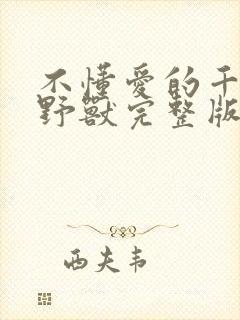 不懂愛的千
野獸完整版
西夫韦